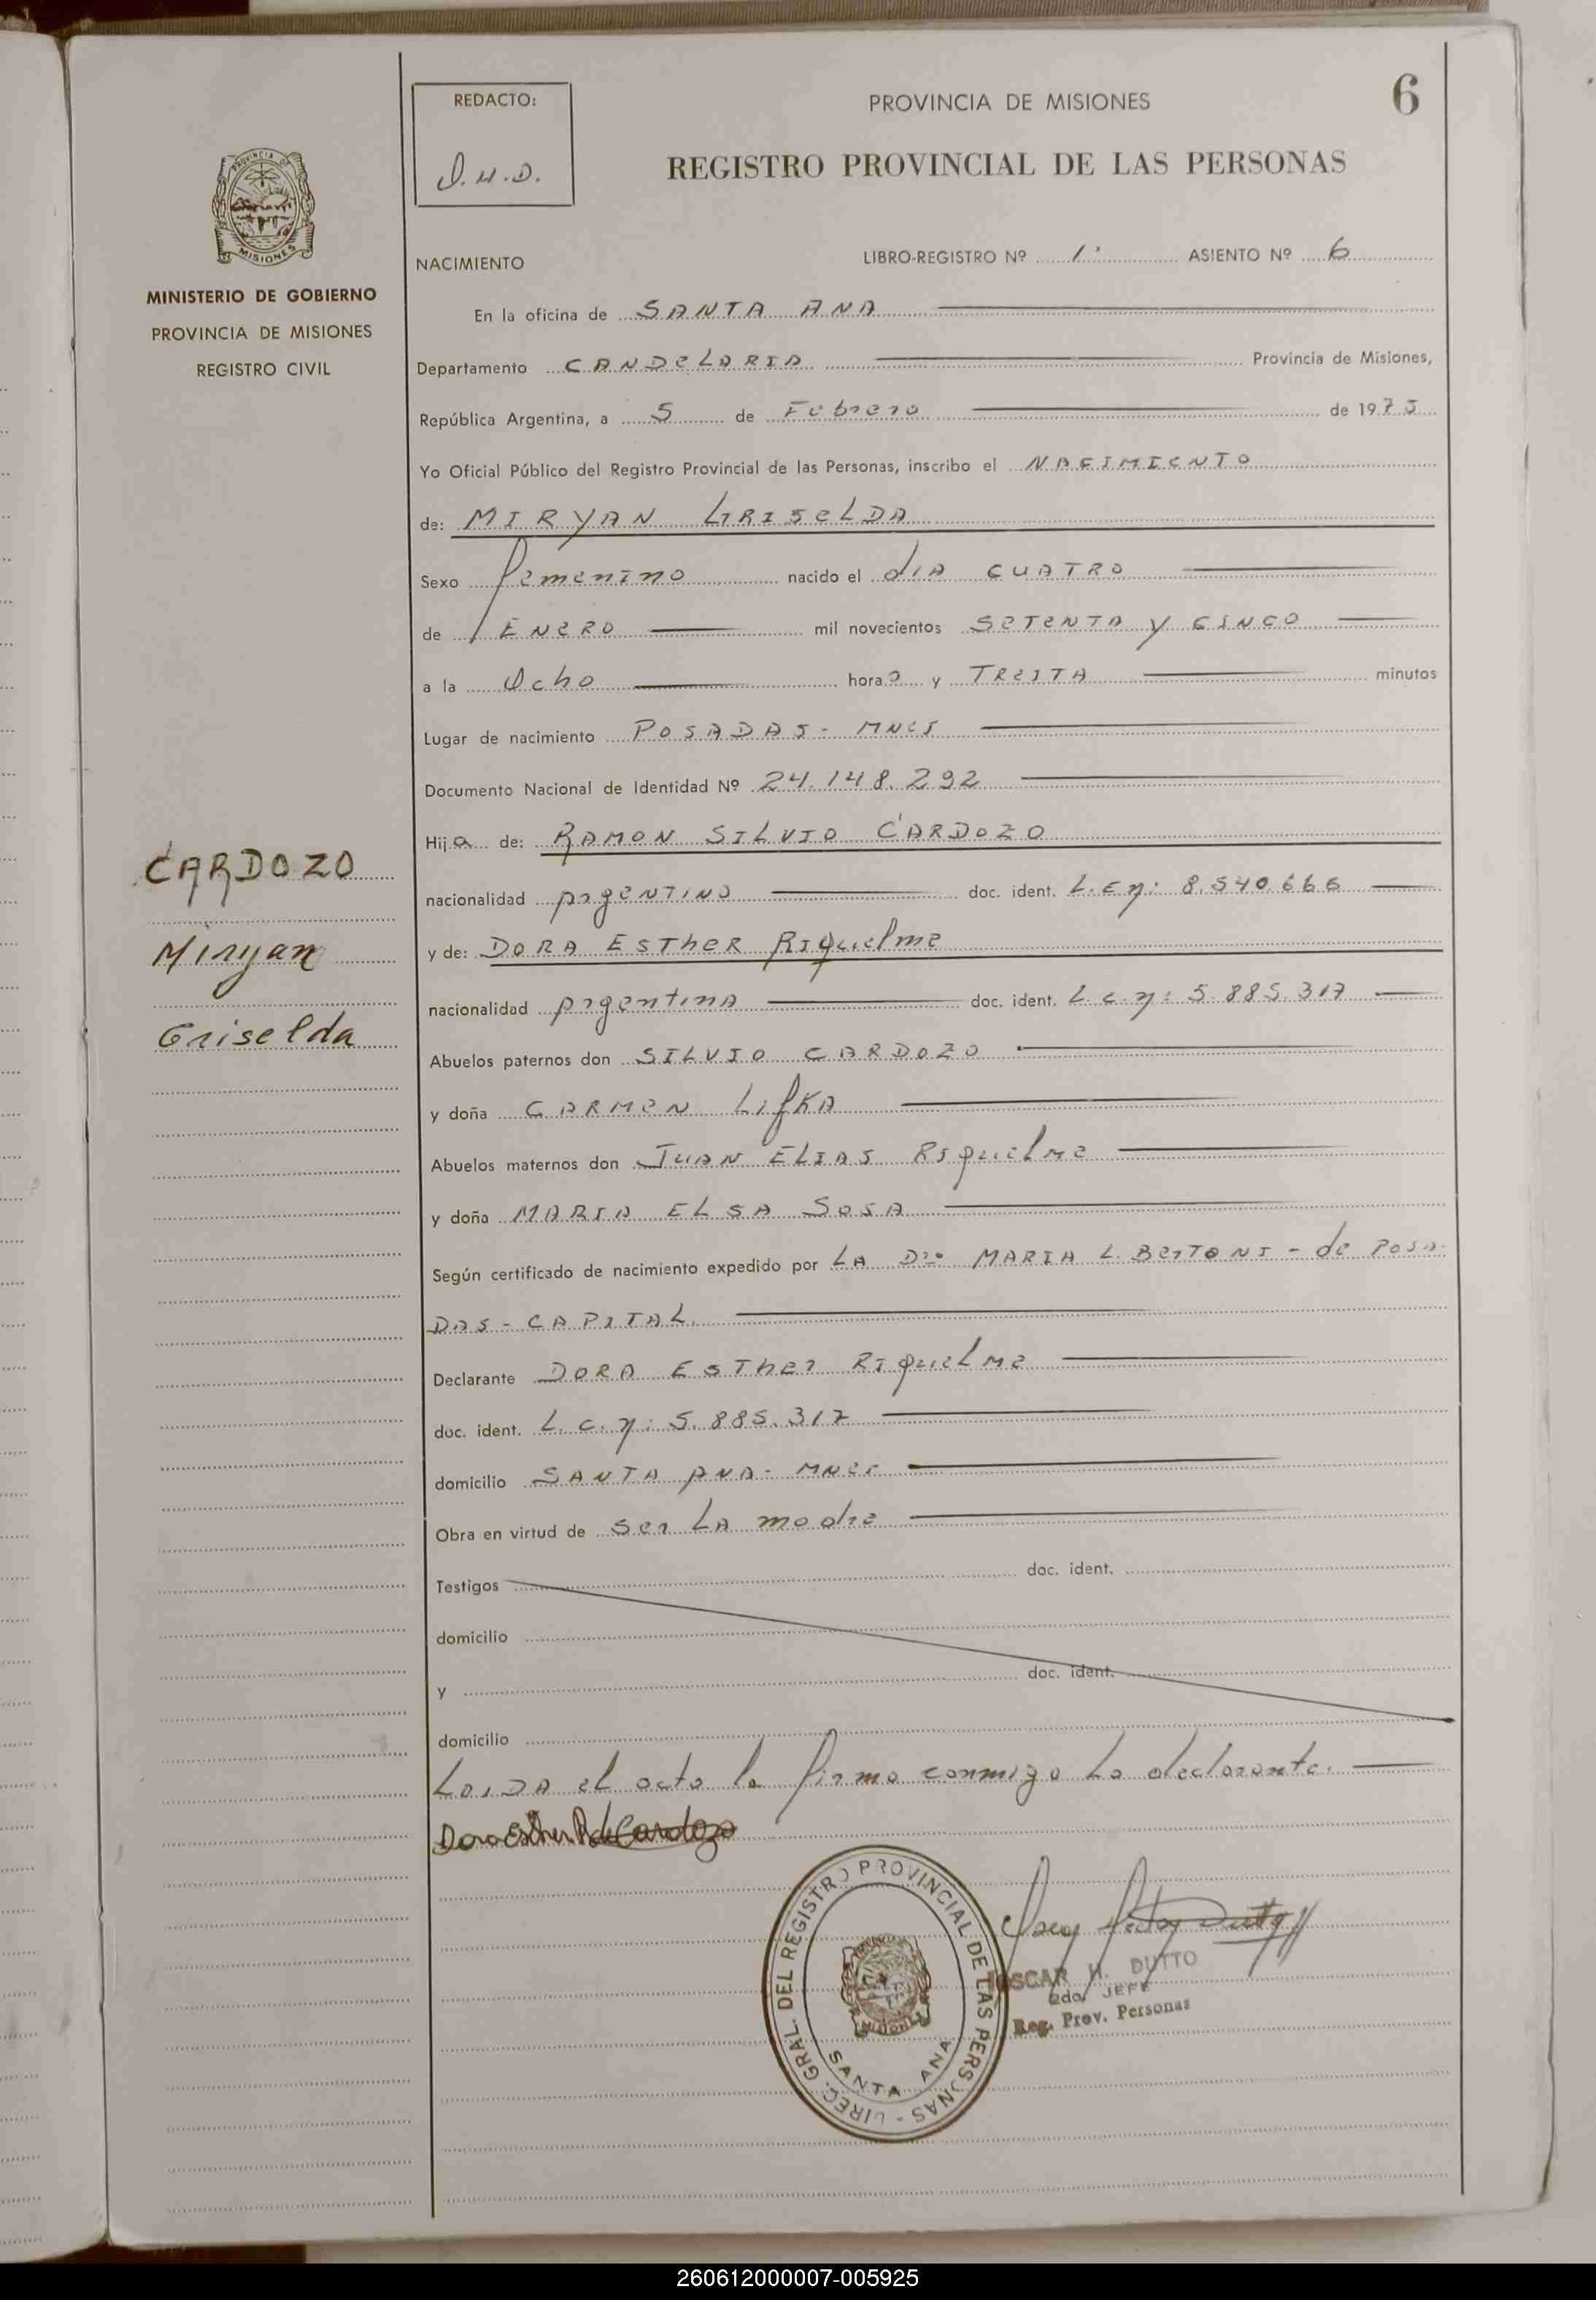 6
REDACTO:
O.H.D.
PROVINCIA DE MISIONES
REGISTRO PROVINCIAL DE LAS PERSONAS
PROVINCIA DE
MISIONES
MINISTERIO DE GOBIERNO
PROVINCIA DE MISIONES
REGISTRO CIVIL
NACIMIENTO LIBRO-REGISTRO Nº 1º ASIENTO Nº 6
En la oficina de SANTA ANA
Departamento CANDeLARIA Provincia de Misiones,
República Argentina, a 5 de Febrero de 1975
Yo Oficial Público del Registro Provincial de las Personas, inscribo el NACIMIENTO
de: MIRYAN GRISeLDA
Sexo femenino nacido el dIA CUATRO
de ENeRO mil novecientos SeTeNTA y CINCO
a la Ocho horas y TReITA minutos
Lugar de nacimiento POSADAS - MNES
Documento Nacional de Identidad Nº 24.148.292
Hija de: RAMON SILVIO CARDOZO
nacionalidad ArgeNTINO doc. ident. L.E.n: 8.540.666
y de: DORA ESTheR RIquelme
nacionalidad Argentina doc. ident. L.c.n: 5.885.317
Abuelos paternos don SILVIO CARDOZO
y doña CARMeN LifKA
Abuelos maternos don JUAN ELIAS RIqueLMe
y doña MARIA ELSA SOSA
Según certificado de nacimiento expedido por LA Dra MARIA L. BerTONI - de POSA-
DAS - CAPITAL.
Declarante DORA ESTher RIqueLMe
doc. ident. L.c.n: 5.885.317
domicilio SANTA ANA - MNES
Obra en virtud de Ser LA madre
Testigos doc. ident.
domicilio
y doc. ident.
domicilio
LeIDA el acta la firma conmigo La declarante.
Dora Esther R de Cardozo
CARDOZO
Miryan
Griselda
DIREC. GRAL. DEL REGISTRO PROVINCIAL DE LAS PERSONAS -
MISIONES
SANTA ANA
Oscar Hector Dutto
OSCAR H. DUTTO
2do. JEFE
Reg. Prov. Personas
260612000007-005925